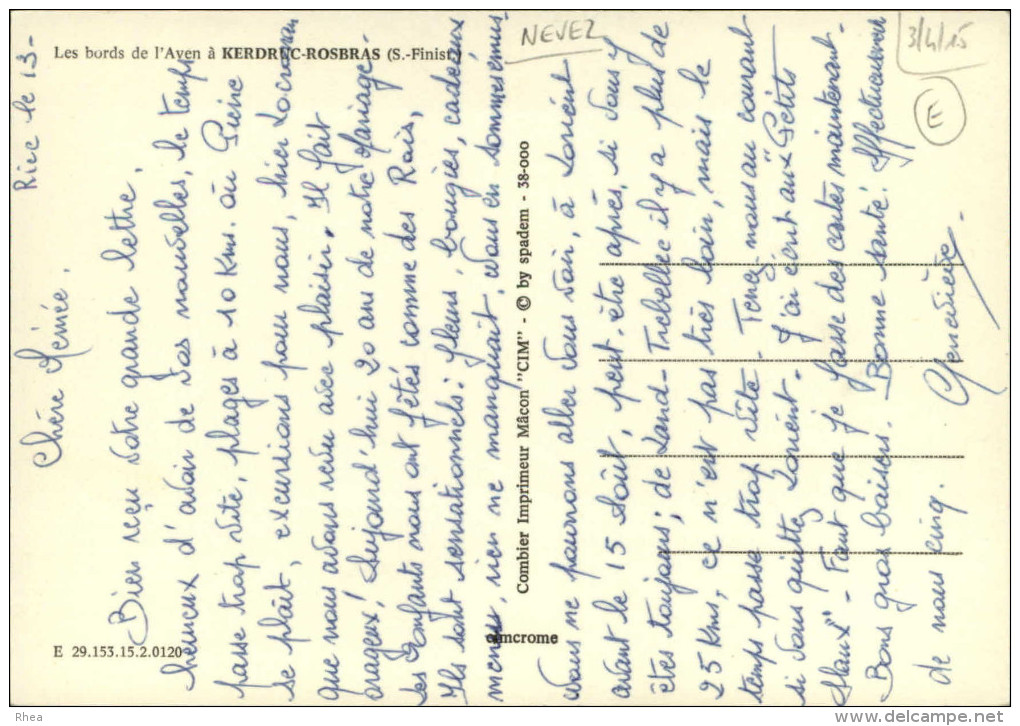 Les bords de l'Aven à KERDRUC-ROSBRAS (S.-Finist.)
NEVEZ
3/4/15
E
Riec le 13-
Chère Mémée.
Bien reçu votre grande lettre,
heureux d'avoir de vos nouvelles, le temps
passe trop vite, plages à 10 Kms. où Pierre
se plaît, excursions pour nous, hier Locronan
que nous avons revu avec plaisir. Il fait
orageux! Aujourd'hui 20 ans de notre Mariage.
Les Enfants nous ont fêtés comme des Rois,
Ils sont sensationnels: fleurs, bougies, cadeaux
menus, rien ne manquait, nous en sommes émus.
Nous ne pourrons aller vous voir, à Lorient
avant le 15 Août, peut-être après, si vous y
êtes toujours; de Land-Trebellec il y a plus de
25 Kms, ce n'est pas très loin, mais le
temps passe trop vite - Tenez-nous au courant
si vous quittez Lorient. J'ai écrit aux "Petits
Maux" - Faut que je fasse des cartes maintenant.
Bons gros baisers. Bonne santé! Affectueusement
de nous cinq.
Geneviève.
Combier Imprimeur Mâcon "CIM" - © by spadem - 38-000
cimcrome
E 29.153.15.2.0120
Rhea
www.delcampe.net